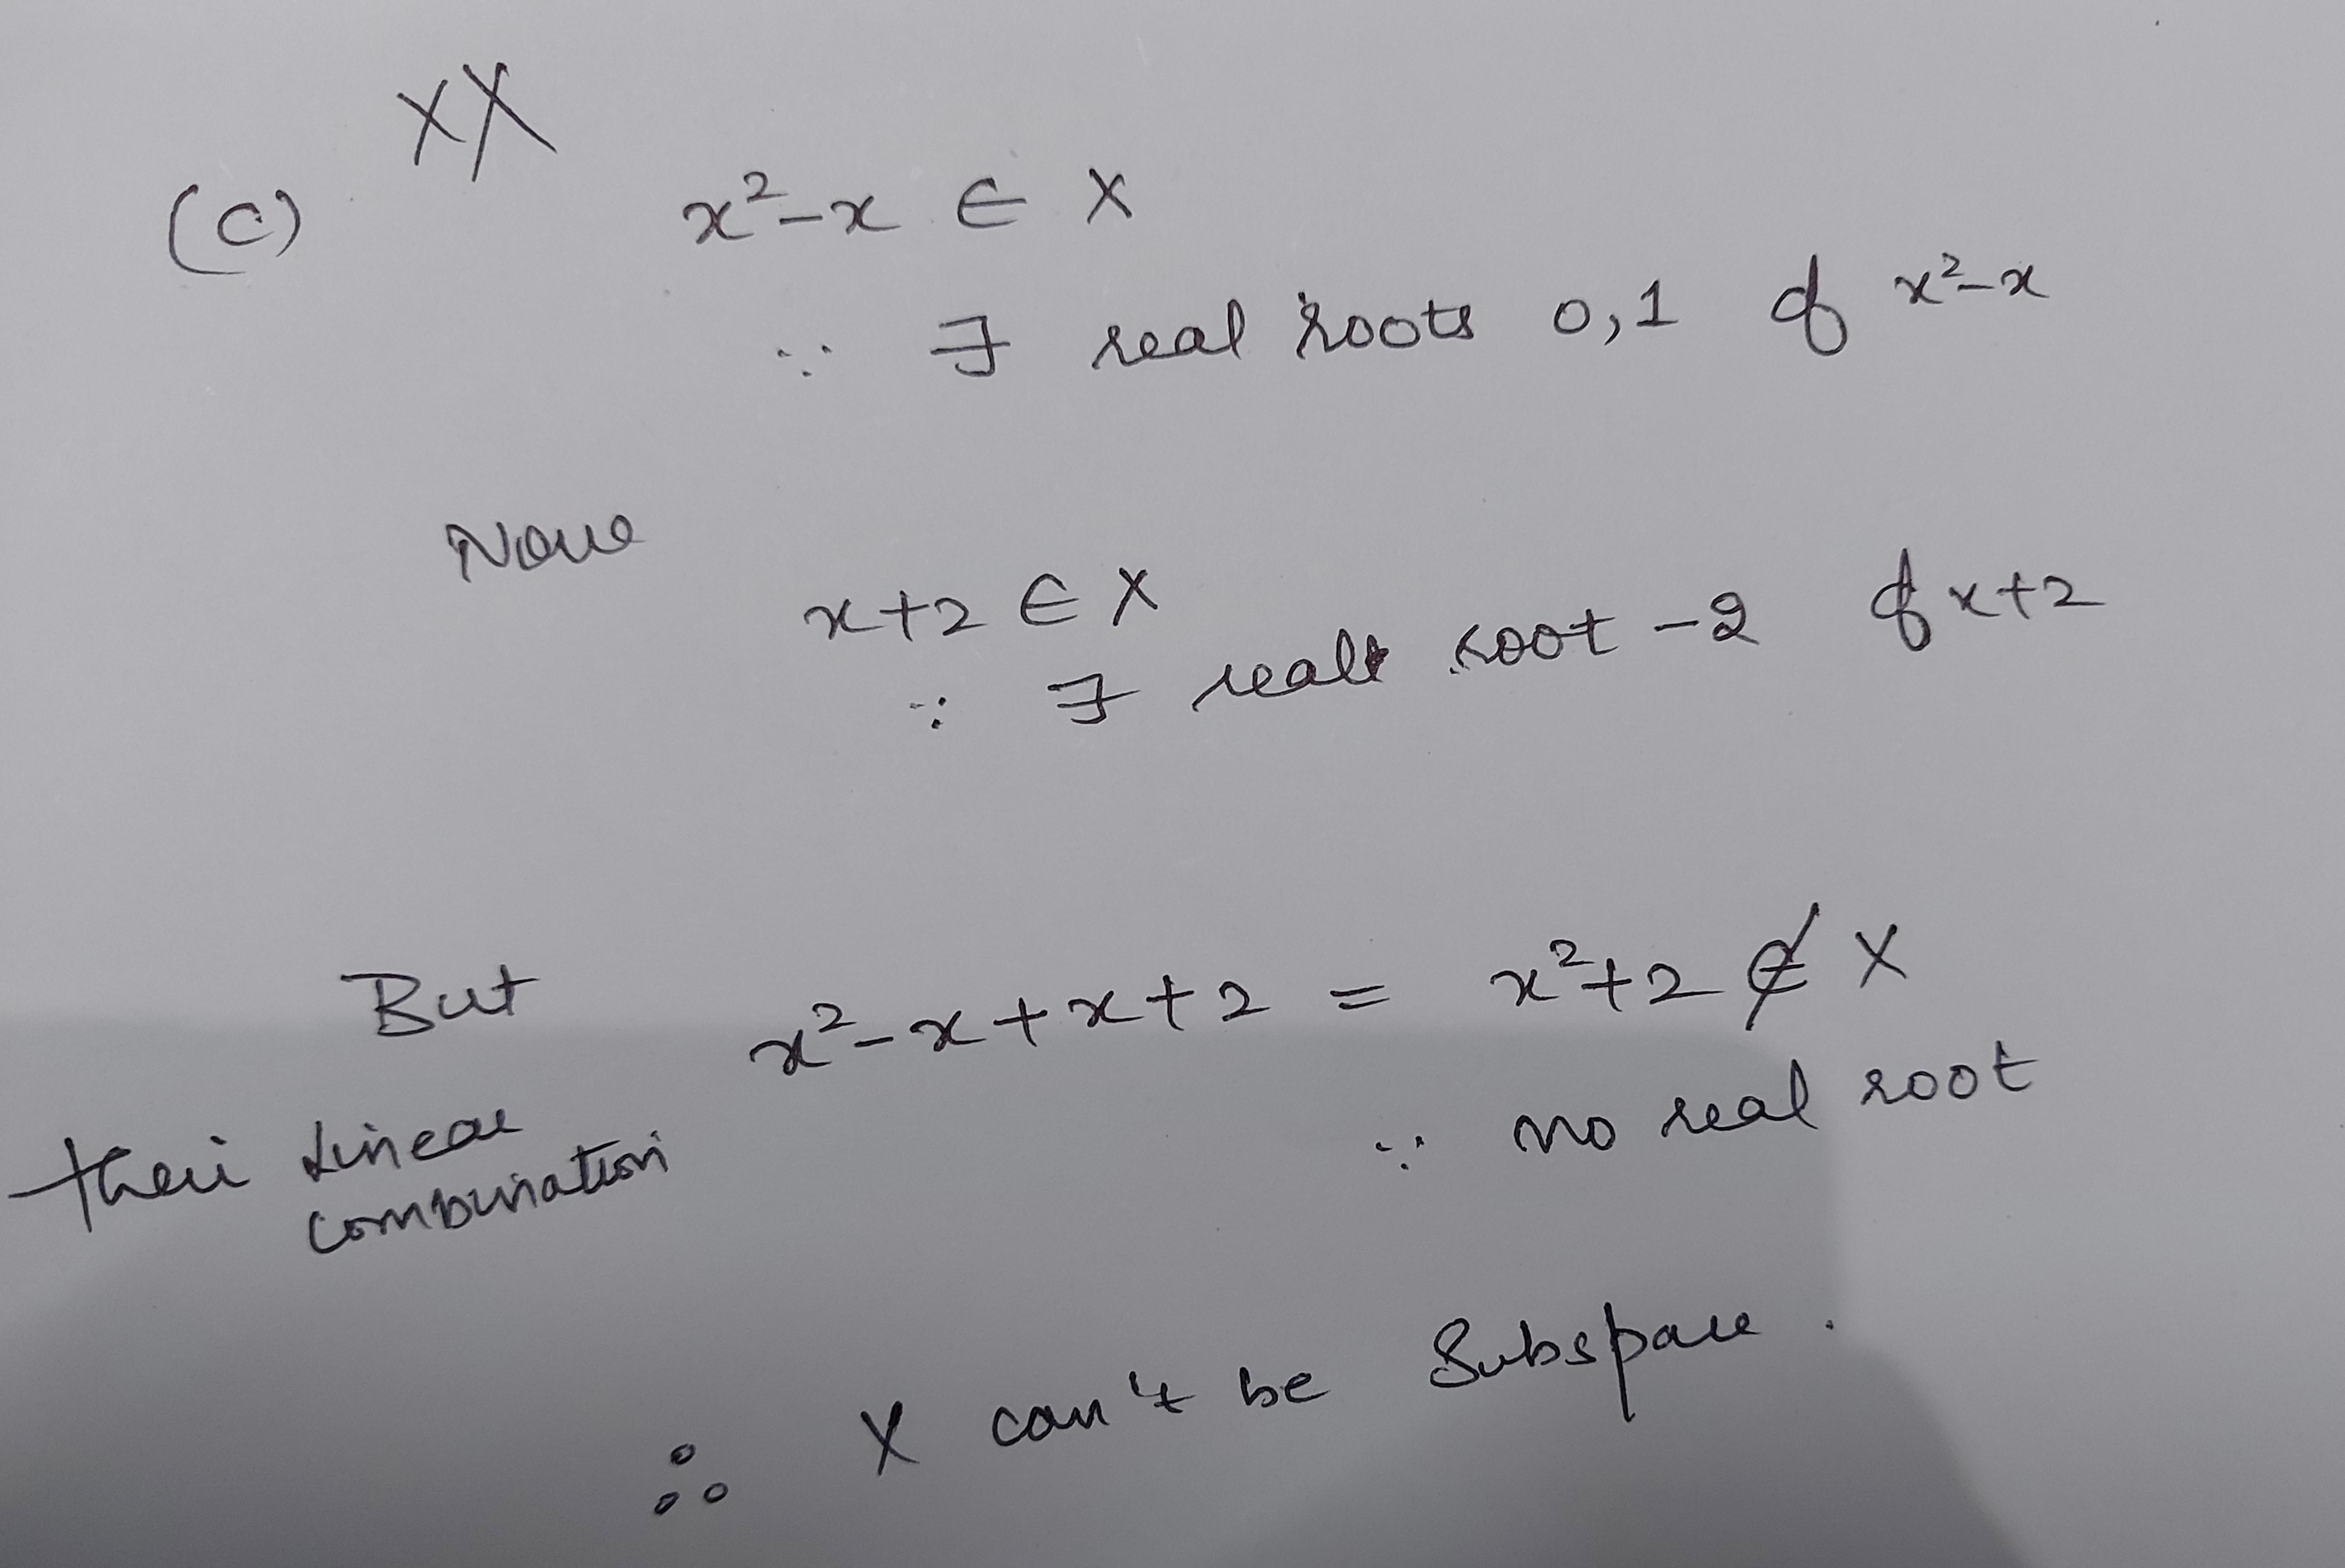 XX
(C) x²-x ∈ X
∵ ∃ real roots 0,1 of x²-x
Now
x+2 ∈ X
∵ ∃ real root -2 of x+2
But x²-x+x+2 = x²+2 ∉ X
their linear combination ∵ no real root
∴ X can't be Subspace.